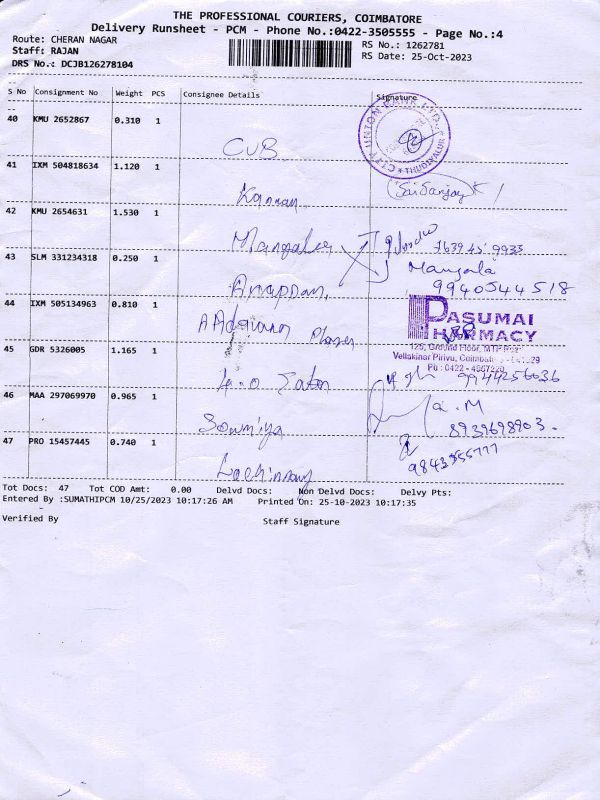 THE PROFESSIONAL COURIERS, COIMBATORE
Delivery Runsheet - PCM - Phone No.:0422-3505555 - Page No.:4
Route: CHERAN NAGAR
RS No.: 1262781
Staff: RAJAN
RS Date: 25-Oct-2023
DRS No.: DCJB126278104
S No Consignment No Weight PCS Consignee Details Signature
40 KMU 2652867 0.310 1
CUB
CITY UNION BANK LTD. * THUDIYALUR *
41 IXM 504818634 1.120 1
Kannan
Sai Sanjay K
42 KMU 2654631 1.530 1
43 SLM 331234318 0.250 1
76394 9933
Mangala
9940544518
44 IXM 505134963 0.810 1
PASUMAI
PHARMACY
125, Ground Floor, MTP Road
Vellakinar Pirivu, Coimbatore
Ph : 0422 - 4567220
45 GDR 5326005 1.165 1
9944256036
46 MAA 297069970 0.965 1
Sowmiya
M
8939698903.
47 PRO 15457445 0.740 1
9843355777
Tot Docs: 47 Tot COD Amt: 0.00 Delvd Docs: Non Delvd Docs: Delvy Pts:
Entered By :SUMATHIPCM 10/25/2023 10:17:26 AM Printed On: 25-10-2023 10:17:35
Verified By Staff Signature